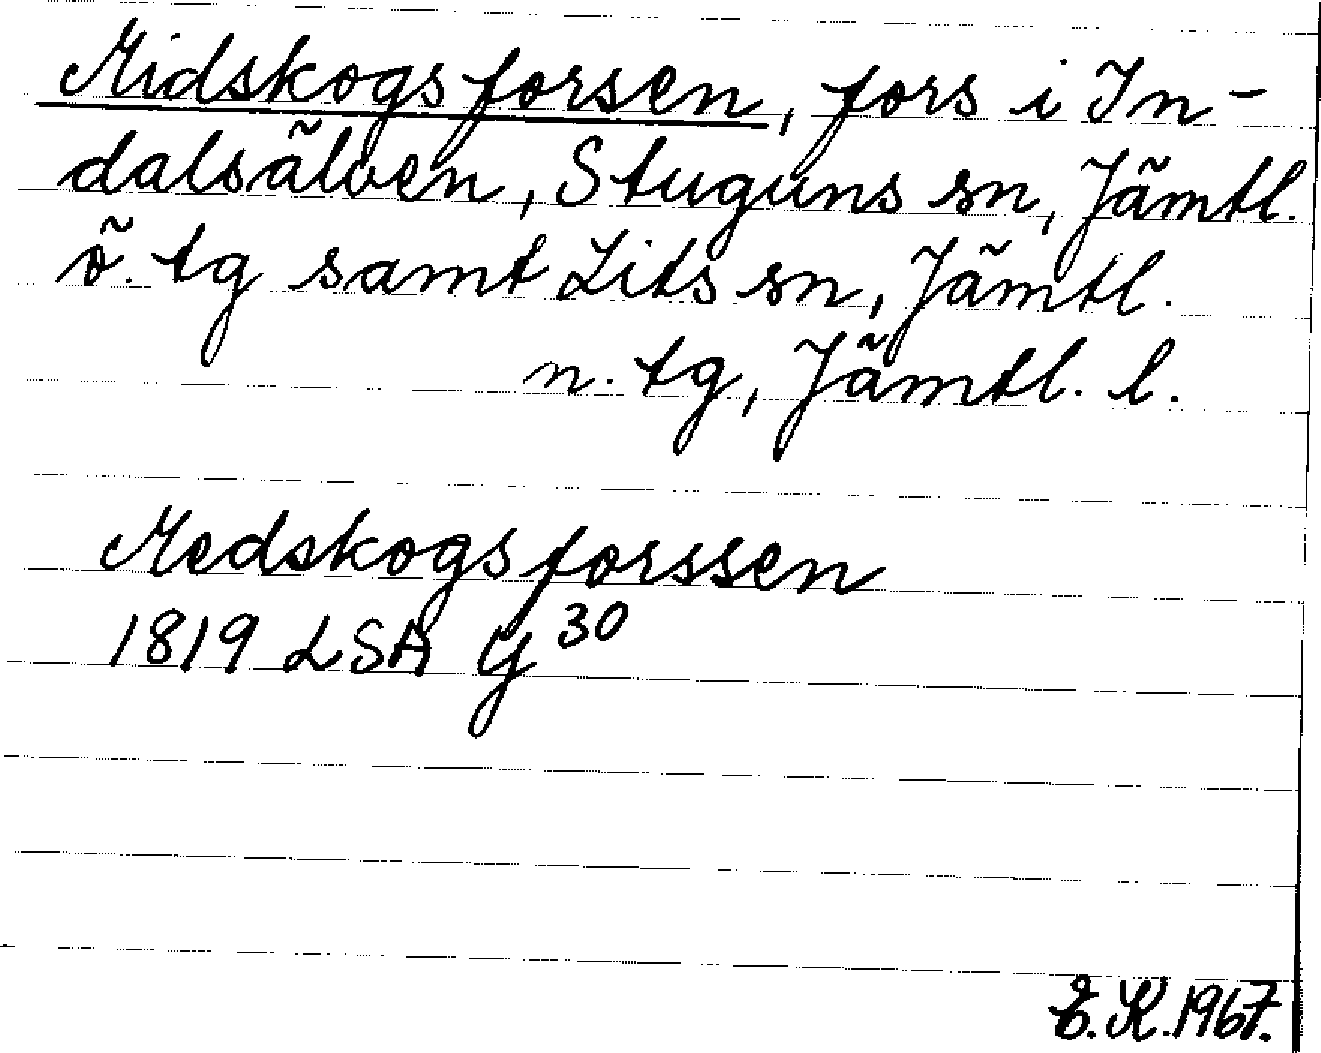 Midskogsforsen, fors i In-
dalsälven, Stuguns sn, Jämtl.
ö. tg samt Lits sn, Jämtl.
n. tg, Jämtl. l.
Medskogsforssen
1819 LSA Y 30
E. K. 1967.